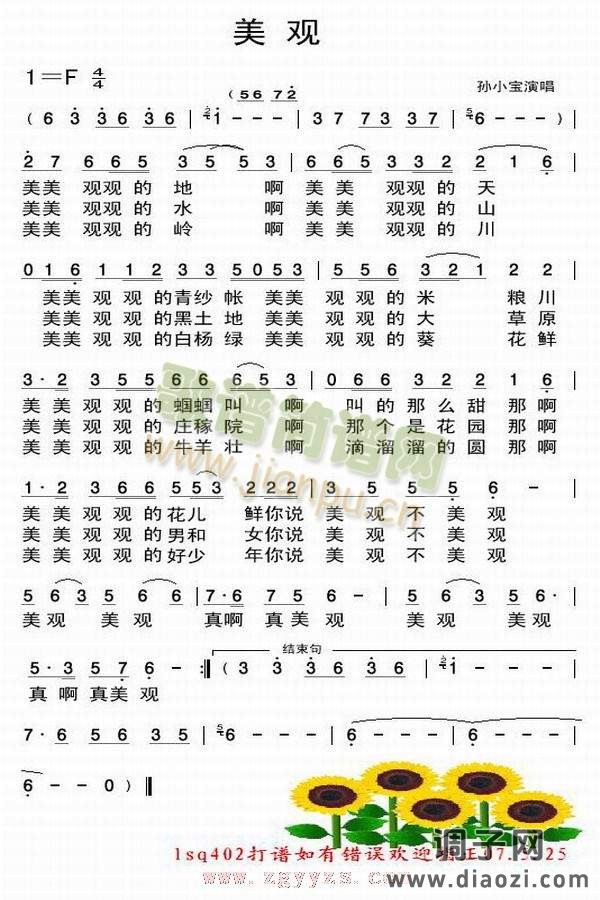 美观
1=F 4/4
孙小宝演唱
(56 72
( 63 36 36 | 1 - - - | 37 73 37 | 6 - - - )
27 665 35 53 | 665 332 2 1 6 |
美美 观观的 地 啊 美美 观观的 天
美美 观观的 水 啊 美美 观观的 山
美美 观观的 岭 啊 美美 观观的 川
016 112 233 5053 | 556 321 2 2 |
美美 观观的青纱帐 美美 观观的米 粮川
美美 观观的黑土地 美美 观观的大 草原
美美 观观的白杨绿 美美 观观的葵 花鲜
3·2 355 66 653 | 066 322 2 1 6 |
美美观观的蝈蝈叫 啊 叫的那么甜那啊
美美观观的庄稼院 啊 那个是花园那啊
美美观观的牛羊壮 啊 滴溜溜的圆那啊
1·2 366 653 222 | 3 5 5 5 6 - |
美美观观的花儿 鲜你说 美观不美观
美美观观的男和 女你说 美观不美观
美美观观的好少 年你说 美观不美观
5 63 5 63 | 7·6 75 6 - | 5 6 63 5 63 |
美观 美观 真啊真美观 美观 美观
结束句
5·3 576 - :‖ ( 33 63 36 | 1 - - |
真啊真美观
7·6 56 535 | 6 - - - | 6 - - - | 6 - - - |
6 - - 0 ) ‖
歌谱简谱网
www.jianpu.cn
lsq402打谱如有错误欢迎
www.zgyyzs.com
调子网
www.diaozi.com